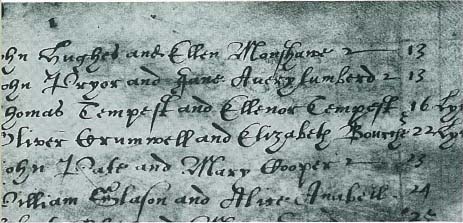 ohn Hughes and Ellen Manshawe 13
ohn Pryor and Jane Averylumberd 13
homas Tempest and Ellenor Tempest 16 Lyc
Oliver Crumwell and Elizabeth Bourcher 22 Lyc
ohn Pate and Mary Cooper 23
William Glason and Alice Anabell 24